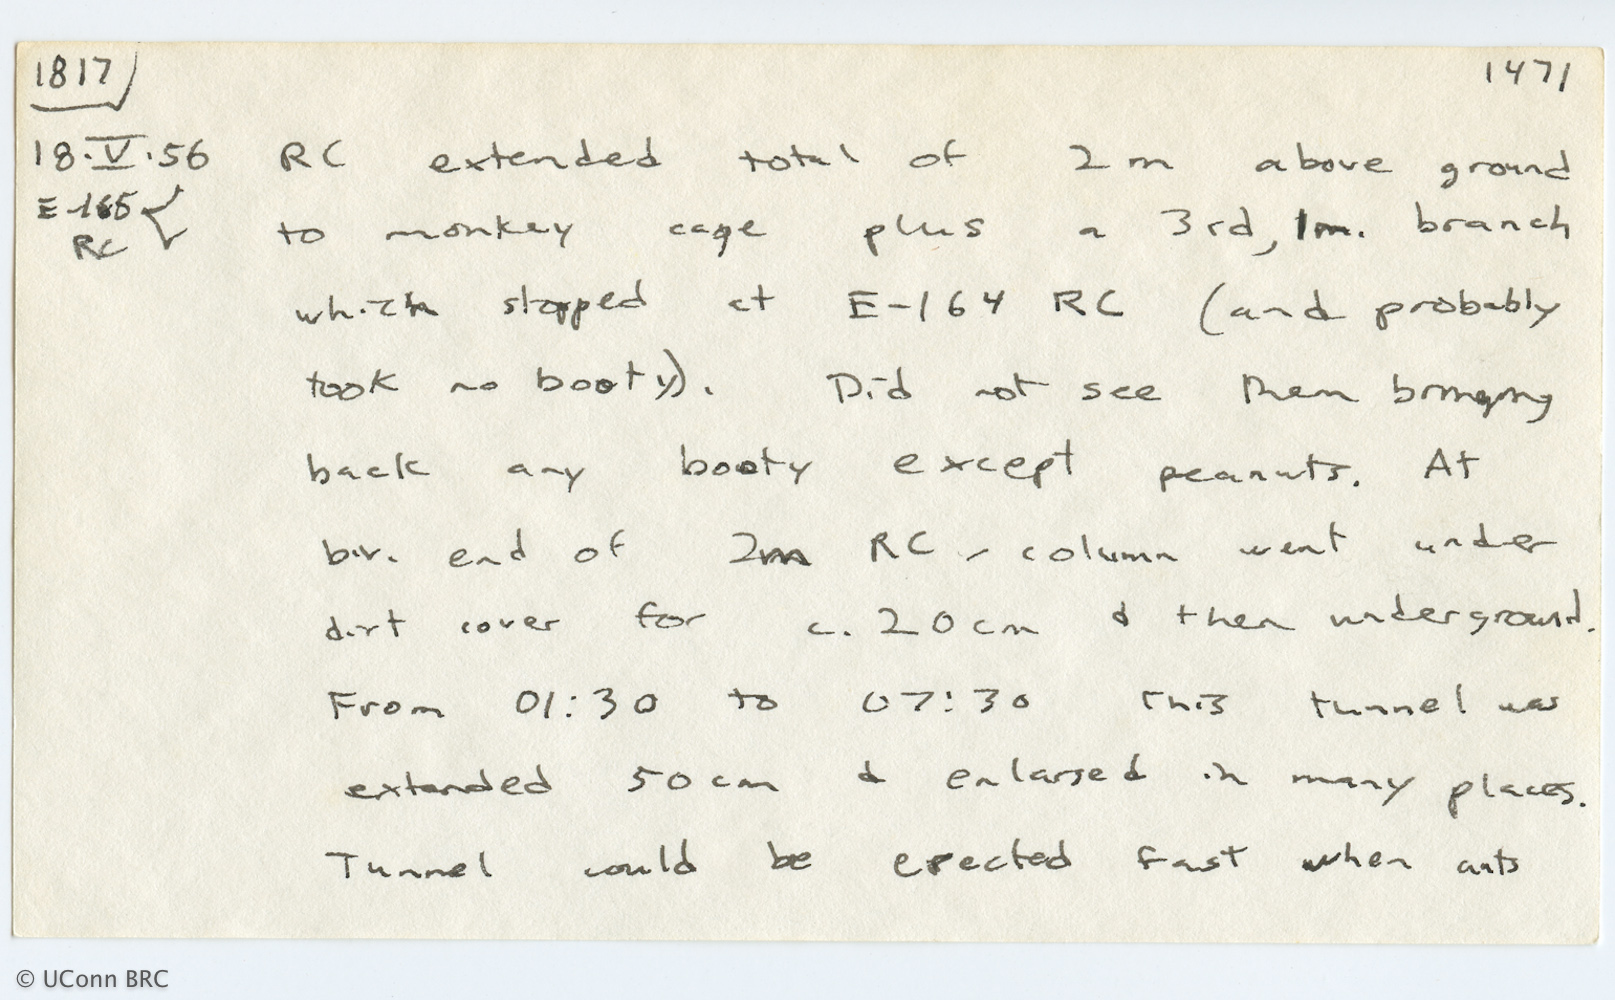 1817 1471
18·V·56 RC extended total of 2m above ground
E-165 RC to monkey cage plus a 3rd, 1m. branch
which stopped at E-164 RC (and probably
took no booty). Did not see them bringing
back any booty except peanuts. At
biv. end of 2m RC - column went under
dirt cover for c. 20cm & then underground.
From 01:30 to 07:30 this tunnel was
extended 50cm & enlarged in many places.
Tunnel could be erected fast when ants
© UConn BRC